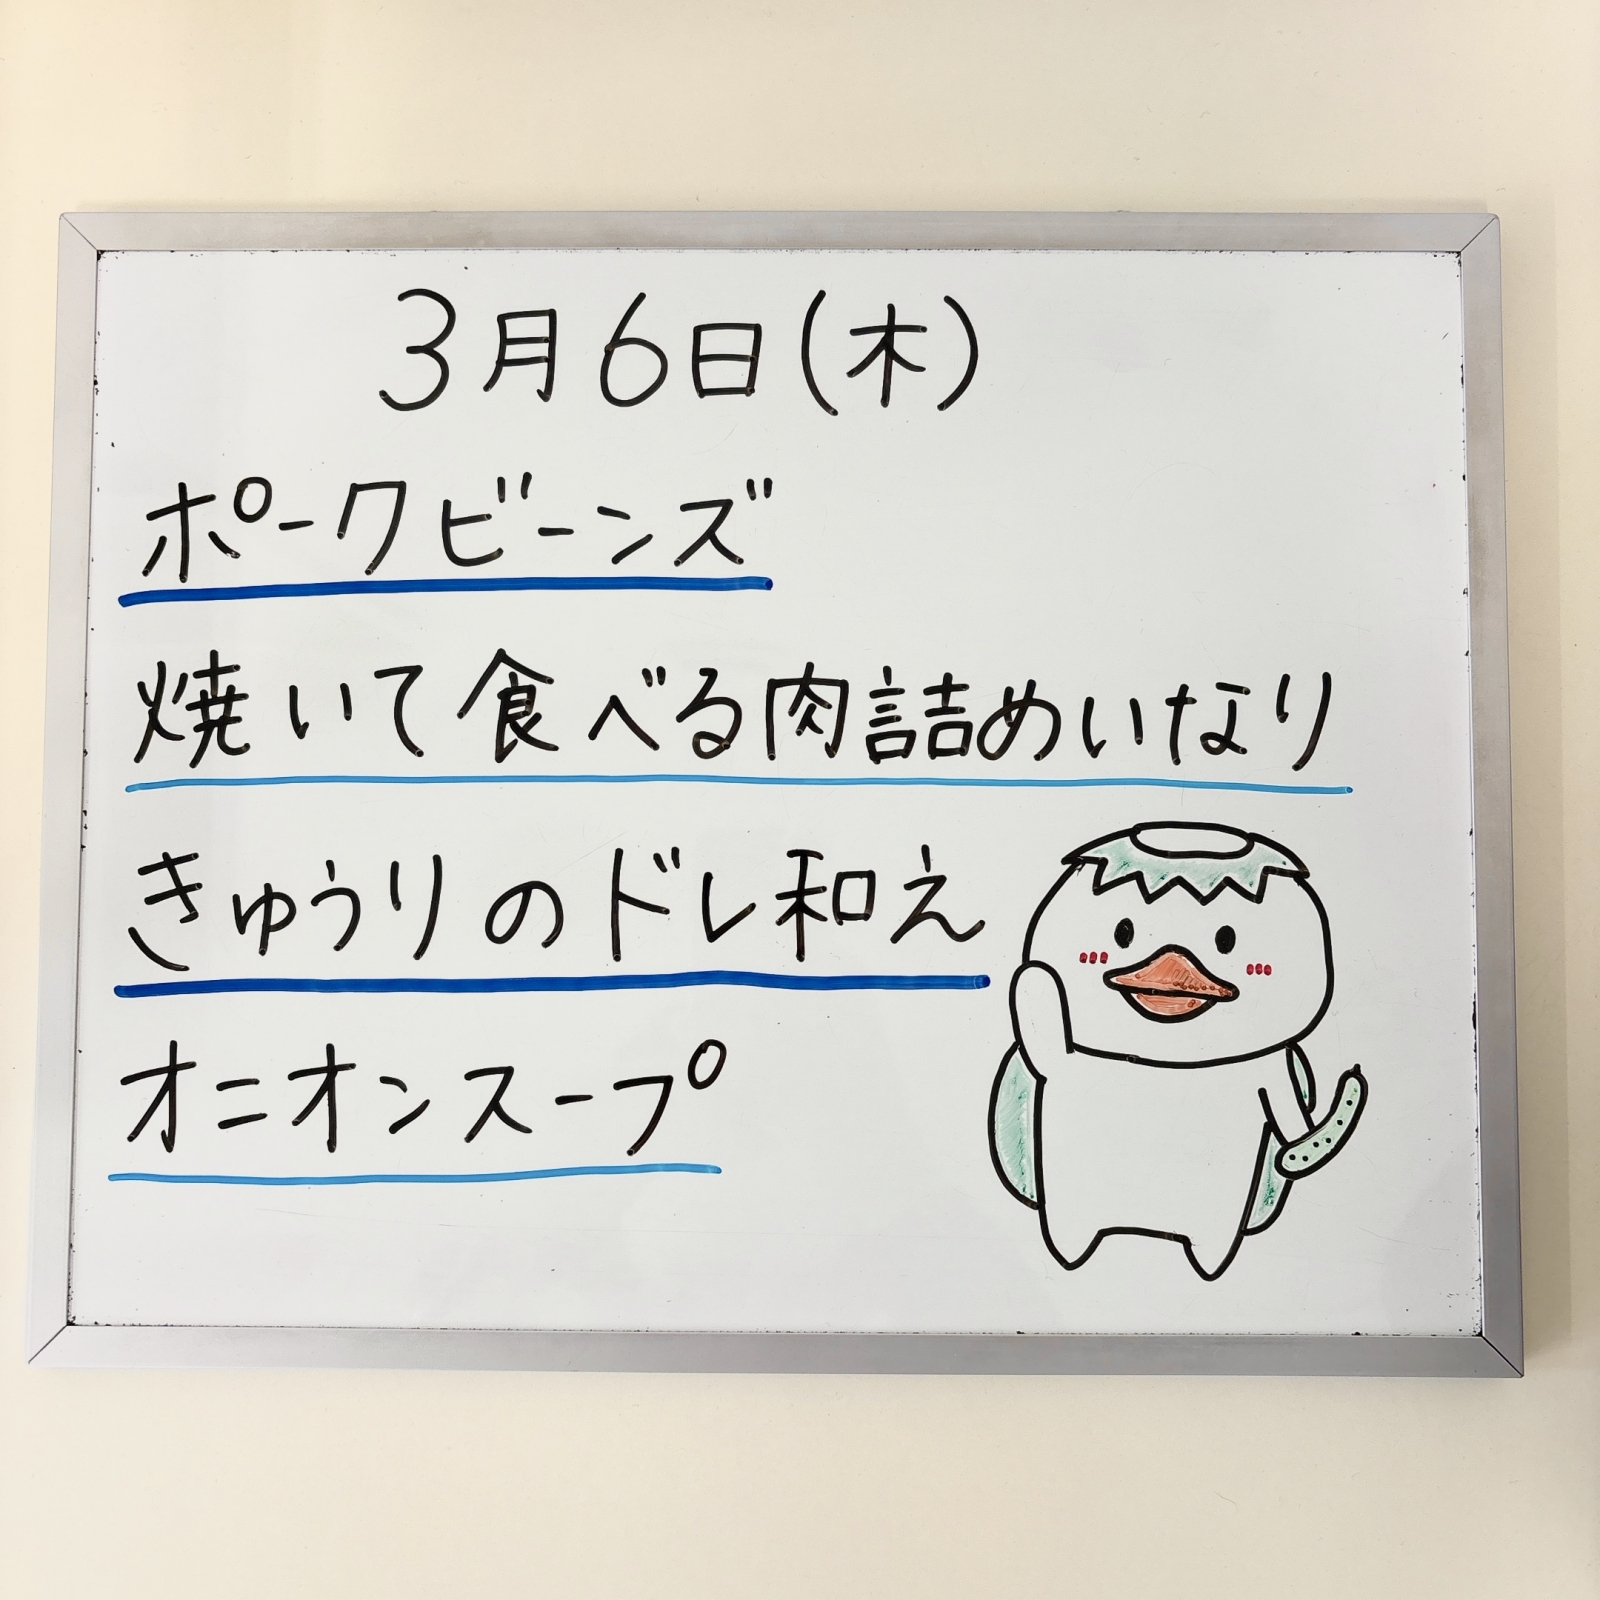 3月6日(木)
ポークビーンズ
焼いて食べる肉詰めいなり
きゅうりのドレ和え
オニオンスープ